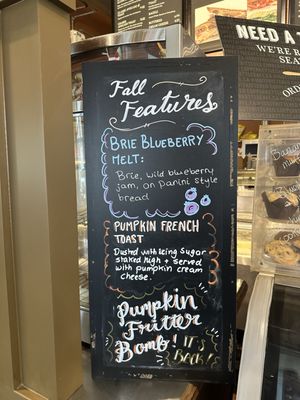 Fall
Features
BRIE BLUEBERRY
MELT:
Brie, wild blueberry
jam, on panini style
bread
PUMPKIN FRENCH
TOAST
Dusted with icing sugar
staked high + served
with pumpkin cream
cheese.
Pumpkin
Fritter
Bomb!
IT'S
BACK!
NEED A
WE'RE